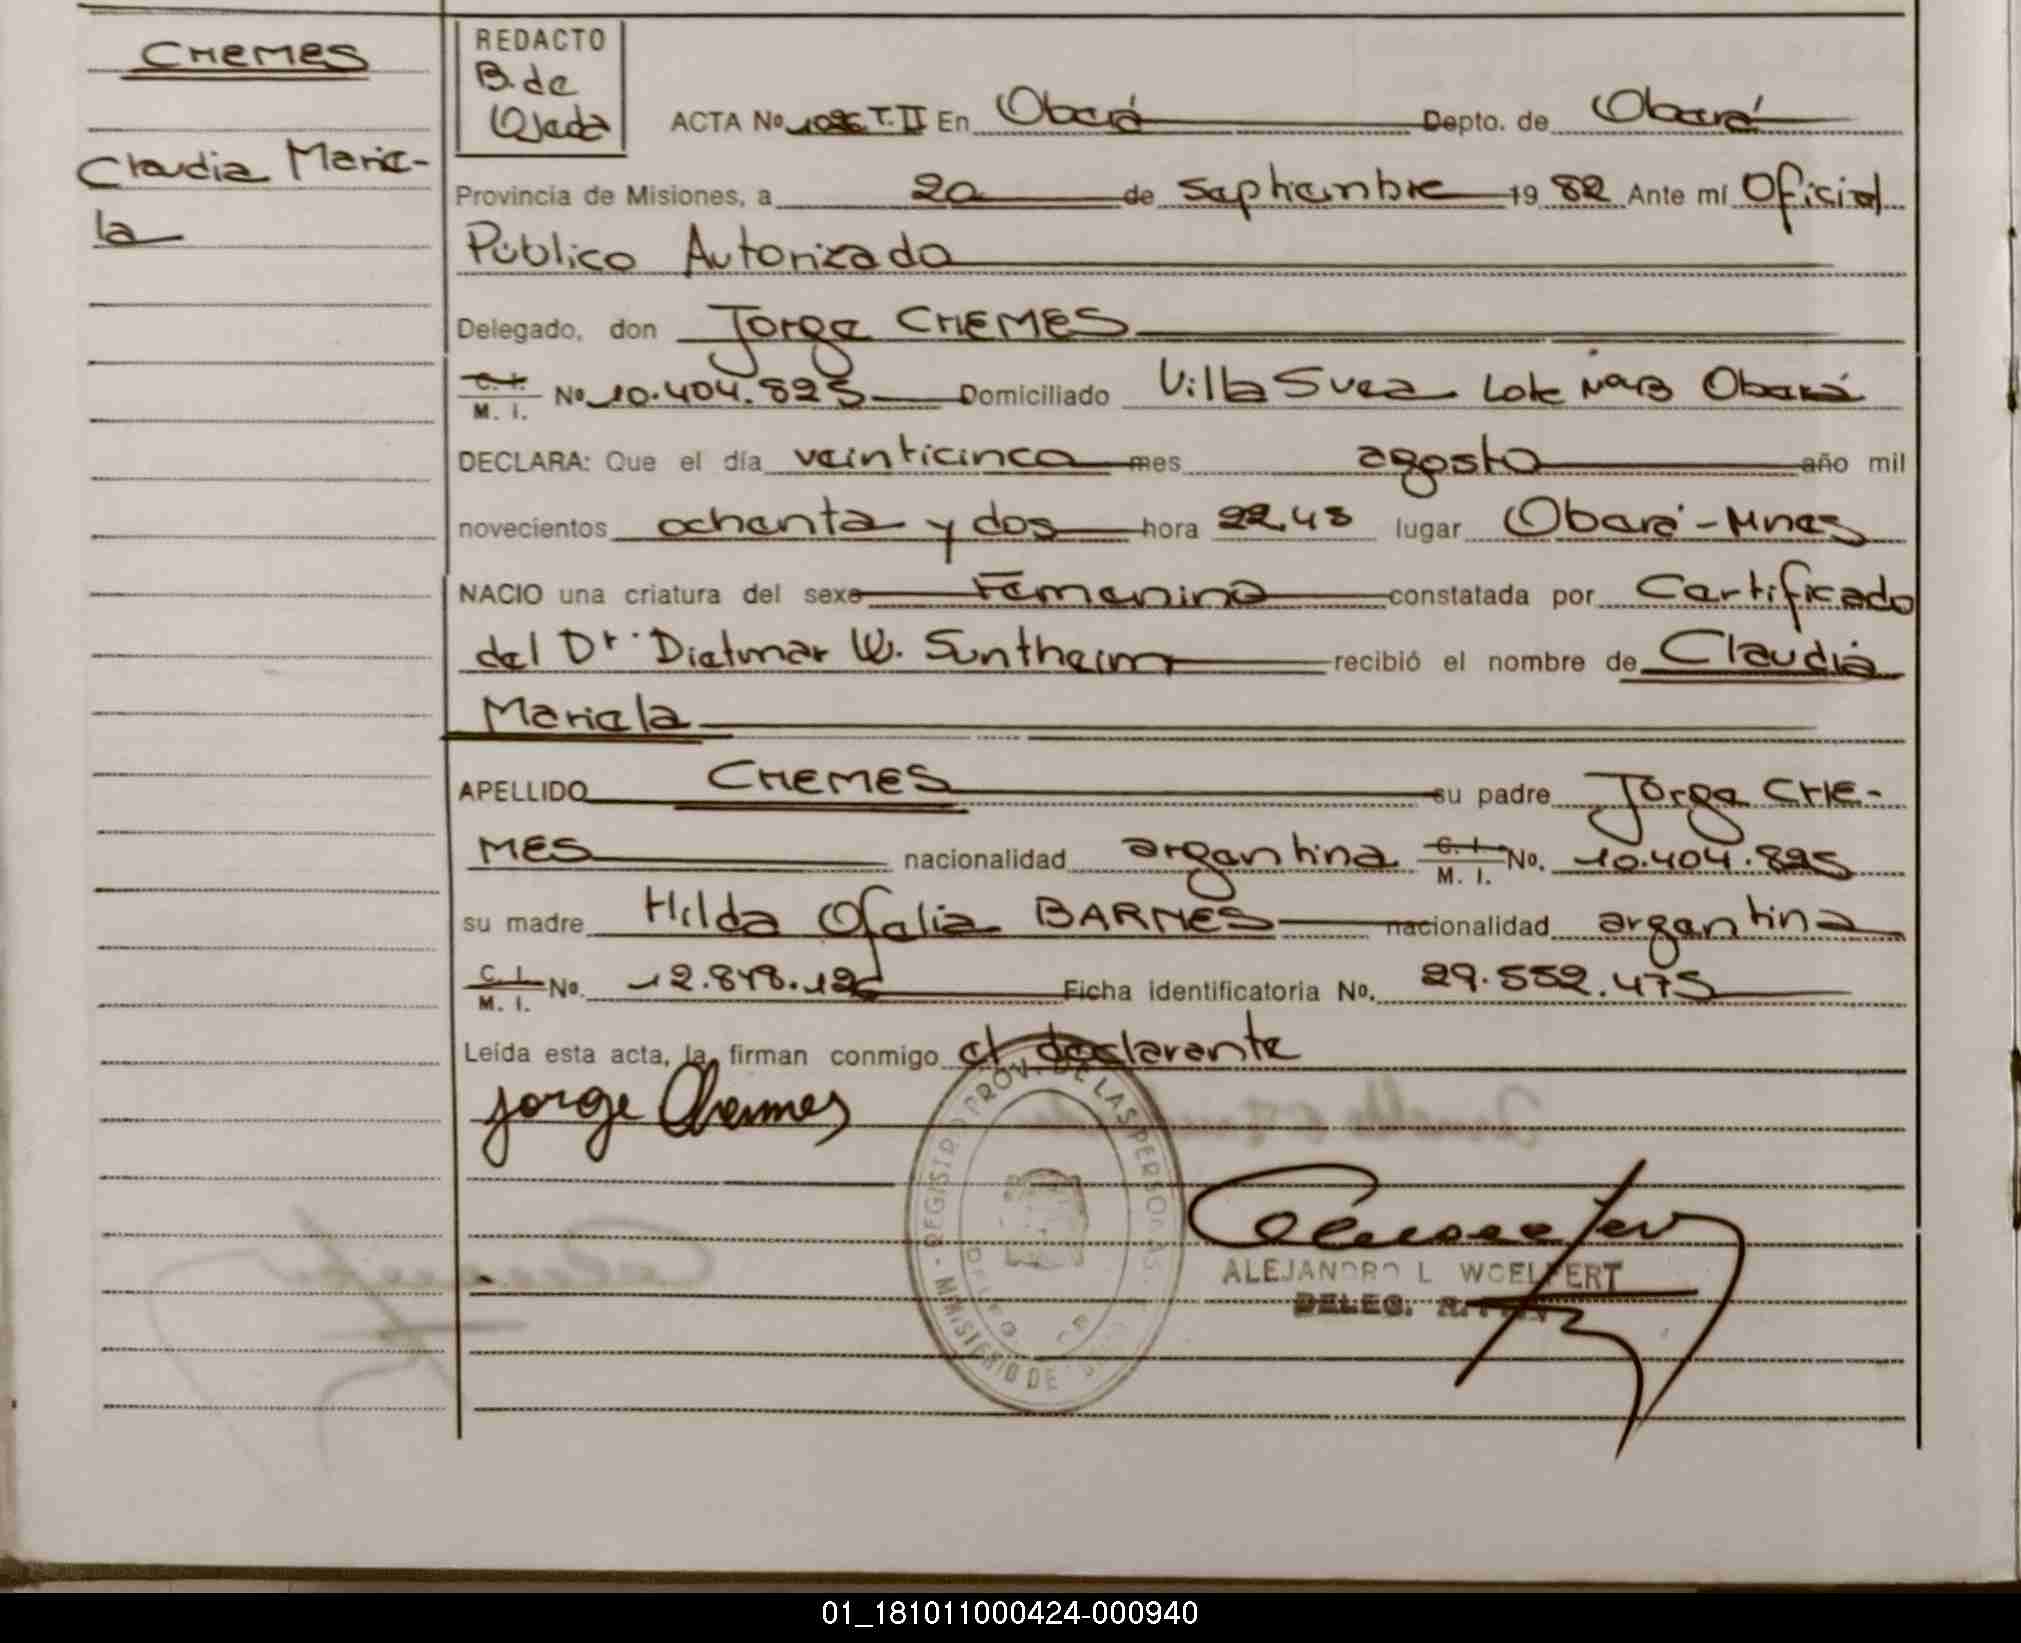 CHEMES
Claudia Marie-
la
REDACTO
B. de
Ojeda
ACTA No 1096 T. II En Oberá Depto. de Oberá
Provincia de Misiones, a 20 de Septiembre 19 82 Ante mí Oficial
Público Autorizado
Delegado, don Jorge CHEMES
C. I. M. I. No 10.404.825 Domiciliado Villa Svea Lote Oberá
DECLARA: Que el día veinticinco mes agosto año mil
novecientos ochenta y dos hora 22.45 lugar Oberá-Mnes
NACIO una criatura del sexo Femenino constatada por Certificado
del Dr. Dietmar W. Suntheim recibió el nombre de Claudia
Mariela
APELLIDO CHEMES su padre Jorge CHE-
MES nacionalidad argentina C. I. M. I. No. 10.404.825
su madre Hilda Ofelia BARNES nacionalidad argentina
C. I. M. I. No. Ficha identificatoria No. 29.552.475
Leída esta acta, la firman conmigo el declarante
Jorge Chemes
REGISTRO PROV. DE LAS PERSONAS
MINISTERIO DE
ALEJANDRO L WOELFERT
DELEG.
01_181011000424-000940